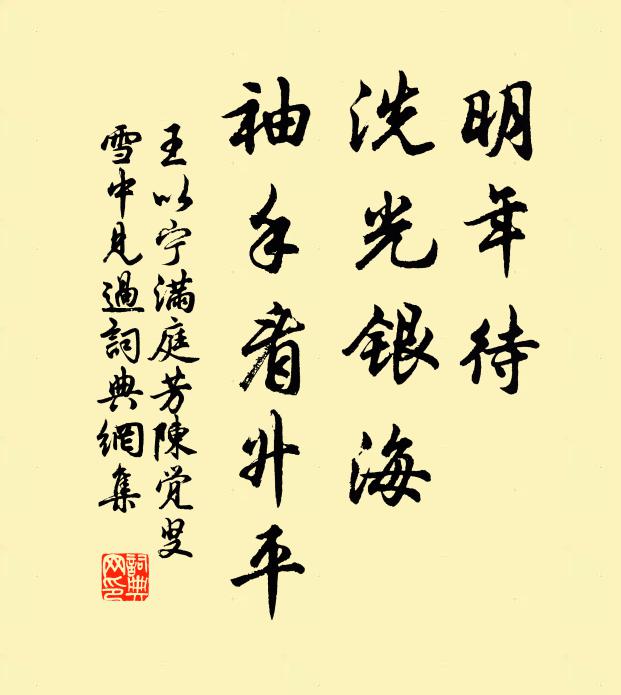 明年待
洗光银海
袖手看升平
王以宁满庭芳陳觉叟
雪中見過詞典網集
詞典
网印